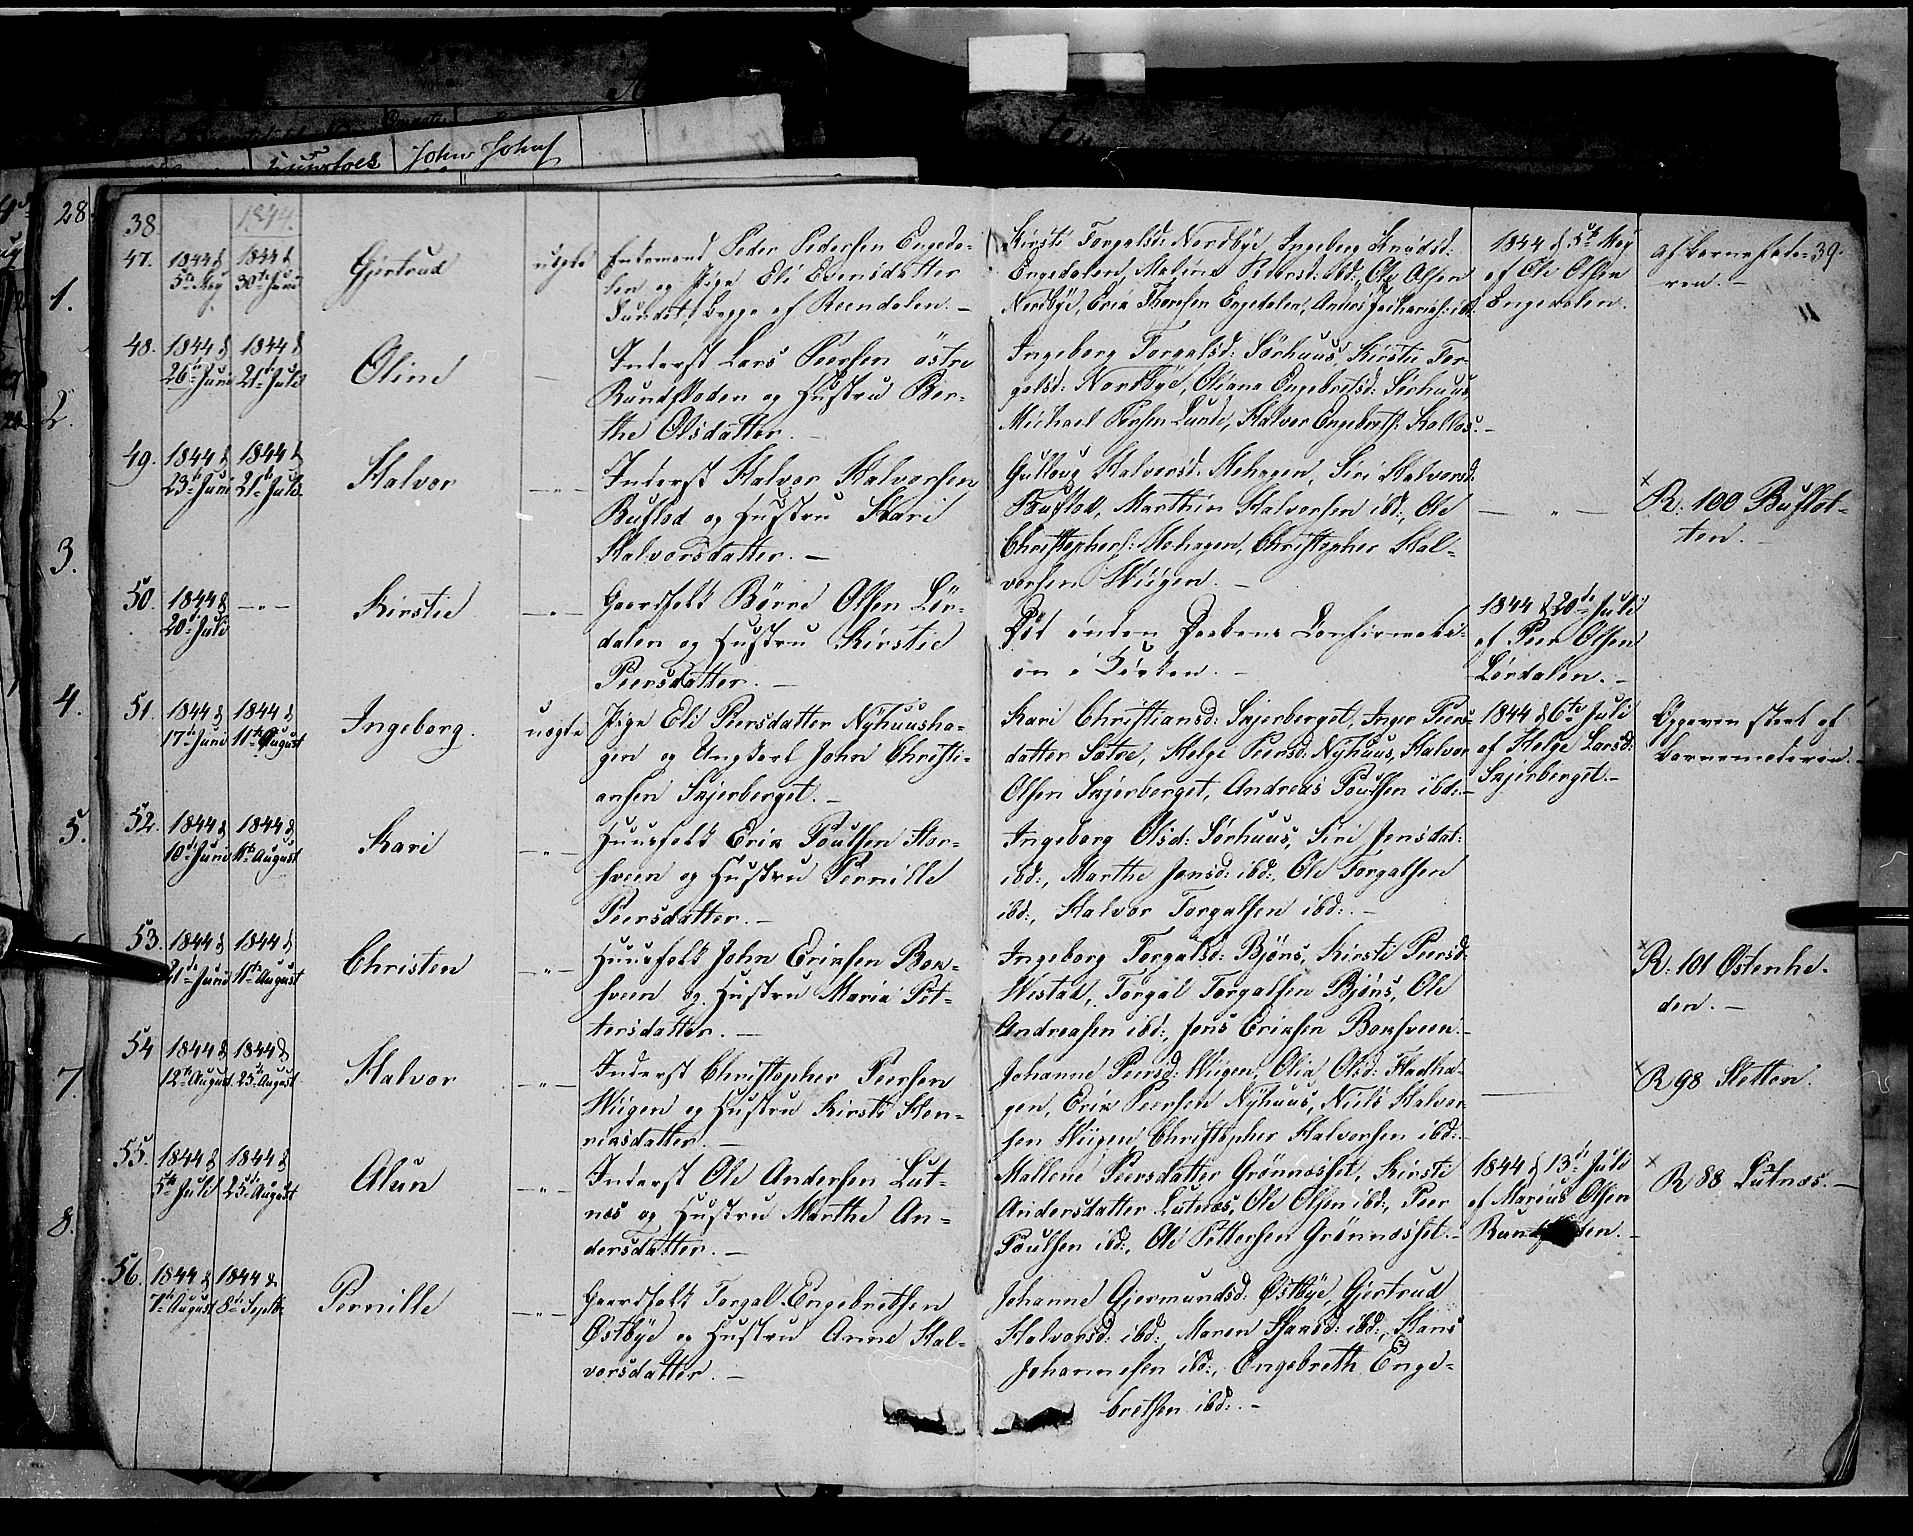 John Johns
28.
38.
1844.
39.
47.
1844 d
5te May
1844 d
30te Juni
Gjertrud
uægte
Enkemand Peder Pedersen Engeda-
len og Pige Eli Evensdatter
Sundet, begge af Reendalen. –
Kirsti Torgalsd: Nordbye, Ingeborg Knudsd:
Engedalen, Malina Pedersd: ibd:, Ole Olsen
Nordbye, Erik Thoresen Engedalen, Anders Zachariass: ibd.
1844 d 5te May
af Ole Olsen
Engedalen.
af barnefade-
ren. –
1.
48.
1844 d
26de Juni
1844 d
21de Juli
Oline
Inderst Lars Peersen østre
Rundfloden og Hustru Ber-
the Olsdatter. –
Ingeborg Torgalsd: Sørhuus, Kirstie Tor-
galsd: Nordbye, Oliana Engebretsd: Sørhuus
Michael Persen Lunde, Halvor Engebrets: Kolbos. –
2.
49.
1844 d
23de Juni
1844 d
21de Juli
Halvor
– „ –
Inderst Halvor Halvorsen
Buflod og Hustru Kari
Halvorsdatter. –
Gulloug Halvorsd: Mohagen, Siri Halvorsd:
Buflod, Marthin Halvorsen ibd:, Ole
Christophers: Mohagen, Christopher Hal-
vorsen Wiigen. –
– „ –
R. 100 Buflot-
ten.
3.
50.
1844 d
20de Juli
– „ –
Kirstie
– „ –
Gaardfolk Børre Olsen Lør-
dalen og Hustru Kirstie
Peersdatter. –
Død inden Daabens Confirmati-
on i Kirken. –
1844 d 20de Juli
af Peer Olsen
Lørdalen. –
4.
51.
1844 d
17de Juni
1844 d
11te August
Ingeborg.
uægte
Pige Eli Peersdatter Nyhuusha-
gen og Ungkarl John Christi-
ansen Skjerberget. –
Kari Christiansd: Skjerberget, Inger Peers-
datter Sætre, Helge Peersd: Nyhuus, Halvor
Olsen Skjerberget, Andreas Poulsen ibd: –
1844 d 6te Juli
af Helge Larsd:
Skjerberget. –
Opgaven skeet af
Barnemoderen. –
5.
52.
1844 d
10de Juni
1844 d
11te August
Kari
– „ –
Huusfolk Erik Poulsen Stor-
hveen og Hustru Pernille
Peersdatter. –
Ingeborg Olsd: Sørhuus, Siri Jensdat:
ibd:, Marthe Jonsd: ibd:, Ole Torgalsen
ibd:, Halvor Torgalsen ibd:. –
53.
1844 d
21de Juni
1844 d
11te August
Christen
– „ –
Huusfolk John Eriksen Bok-
hveen og Hustru Maria Pet-
tersdatter. –
Ingeborg Torgalsd: Bjøns, Kirsti Peersd:
Westad, Torgal Torgalsen Bjøns, Ole
Andreasen ibd:, Jens Eriksen Bokhveen. –
R. 101 Østenhe-
den. –
7.
54
1844 d
12te August
1844 d
25de August
Halvor
– „ –
Inderst Christopher Peersen
Wiigen og Hustru Kirsti Hen-
riksdatter. –
Johanne Peersd: Wiigen, Olia Olsd: Stadha-
gen, Erik Peersen Nyhuus, Niels Halvor-
sen Wiigen, Christopher Halvorsen ibd: –
R 98 Sletten.
8.
55.
1844 d
5te Juli
1844 d
25de August
Alun
– „ –
Inderst Ole Andersen Lut-
næs og Hustru Marthe An-
dersdatter. –
Mallene Peersdatter Grønnæsset, Kirsti
Andersdatter Lutnæs, Ole Olsen ibd:, Peer
Poulsen ibd:, Ole Pettersen Grønnæsset. –
1844 d 13de Juli
af Marius Olsen
R 88 Lutnæs. –
56.
1844 d
7de August
1844 d.
8de Septbr
Pernille
– „ –
Gaardfolk Torgal Engebrethsen
Østbye og Hustru Anne Hal-
vorsdatter. –
Johanne Gjermundsd: Østbye, Gjertrud
Halvorsd: ibd:, Maren Hansd: ibd:, Hans
Johannesen ibd:, Engebreth Enge-
brethsen ibd:. –